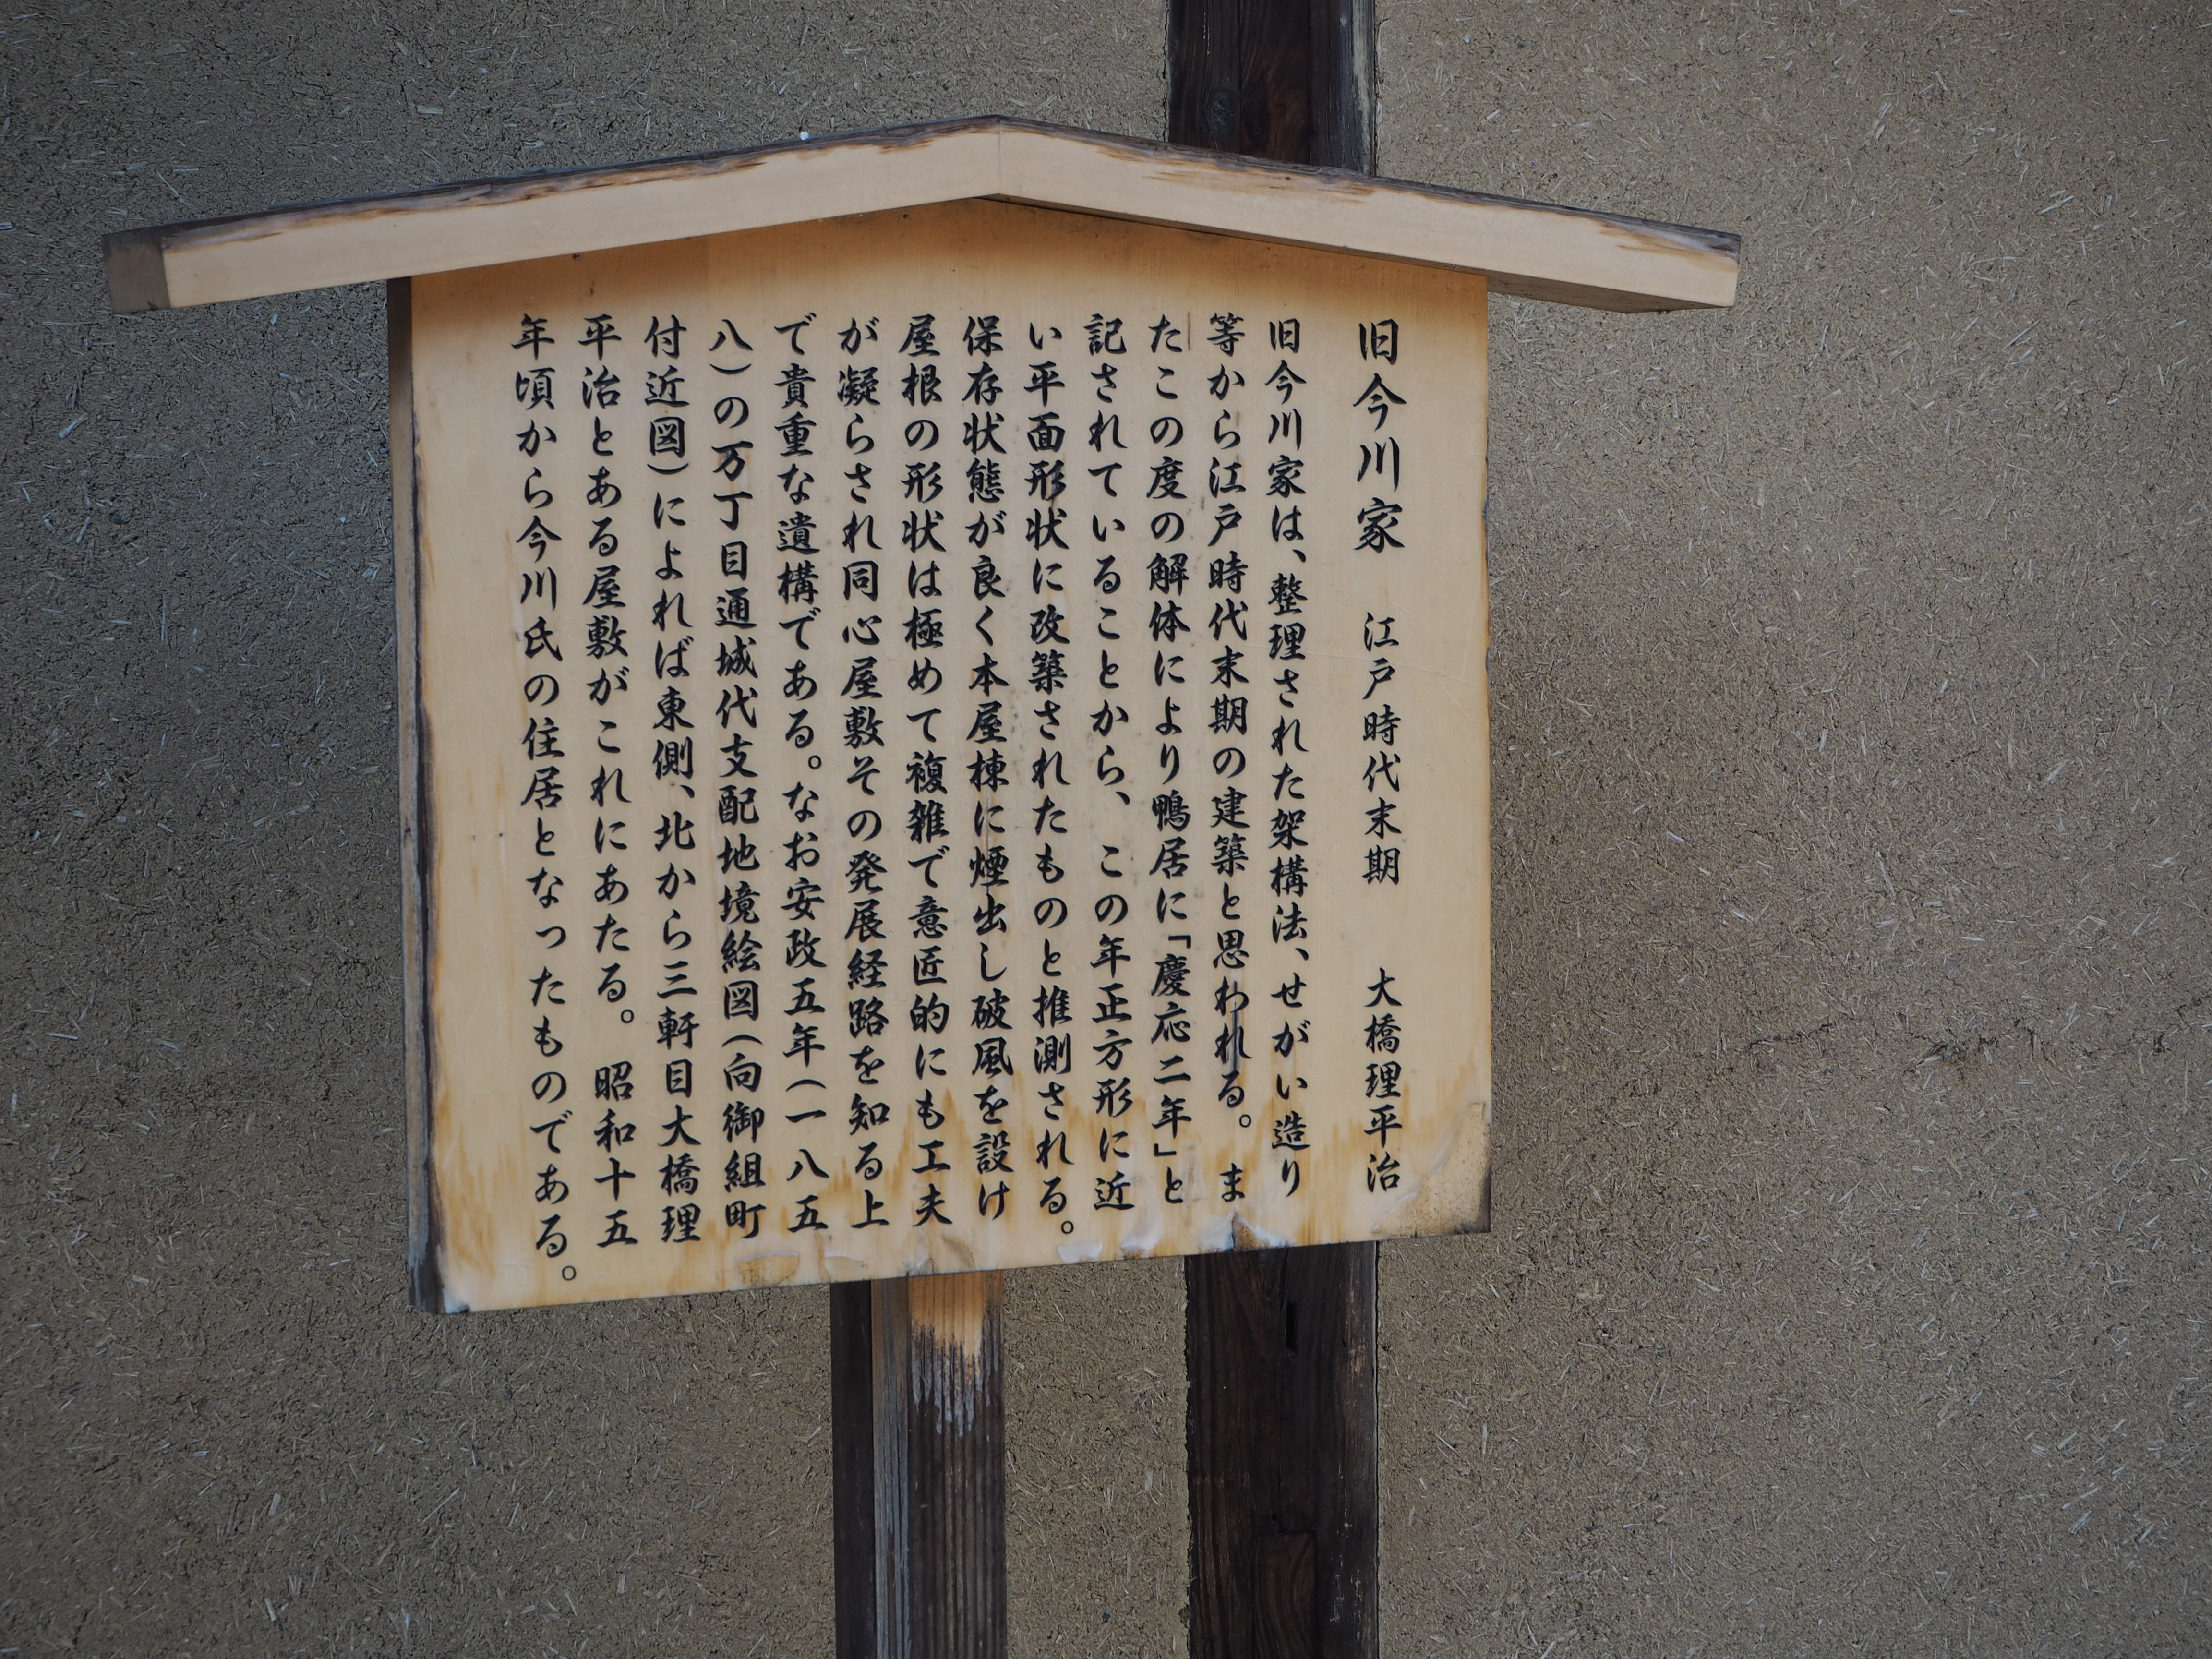 旧今川家　江戸時代末期　大橋理平治
旧今川家は、整理された架構法、せがい造り
等から江戸時代末期の建築と思われる。ま
たこの度の解体により鴨居に「慶応二年」と
記されていることから、この年正方形に近
い平面形状に改築されたものと推測される。
保存状態が良く本屋棟に煙出し破風を設け
屋根の形状は極めて複雑で意匠的にも工夫
が凝らされ同心屋敷その発展経路を知る上
で貴重な遺構である。なお安政五年（一八五
八）の万丁目通城代支配地境絵図（向御組町
付近図）によれば東側、北から三軒目大橋理
平治とある屋敷がこれにあたる。昭和十五
年頃から今川氏の住居となったものである。